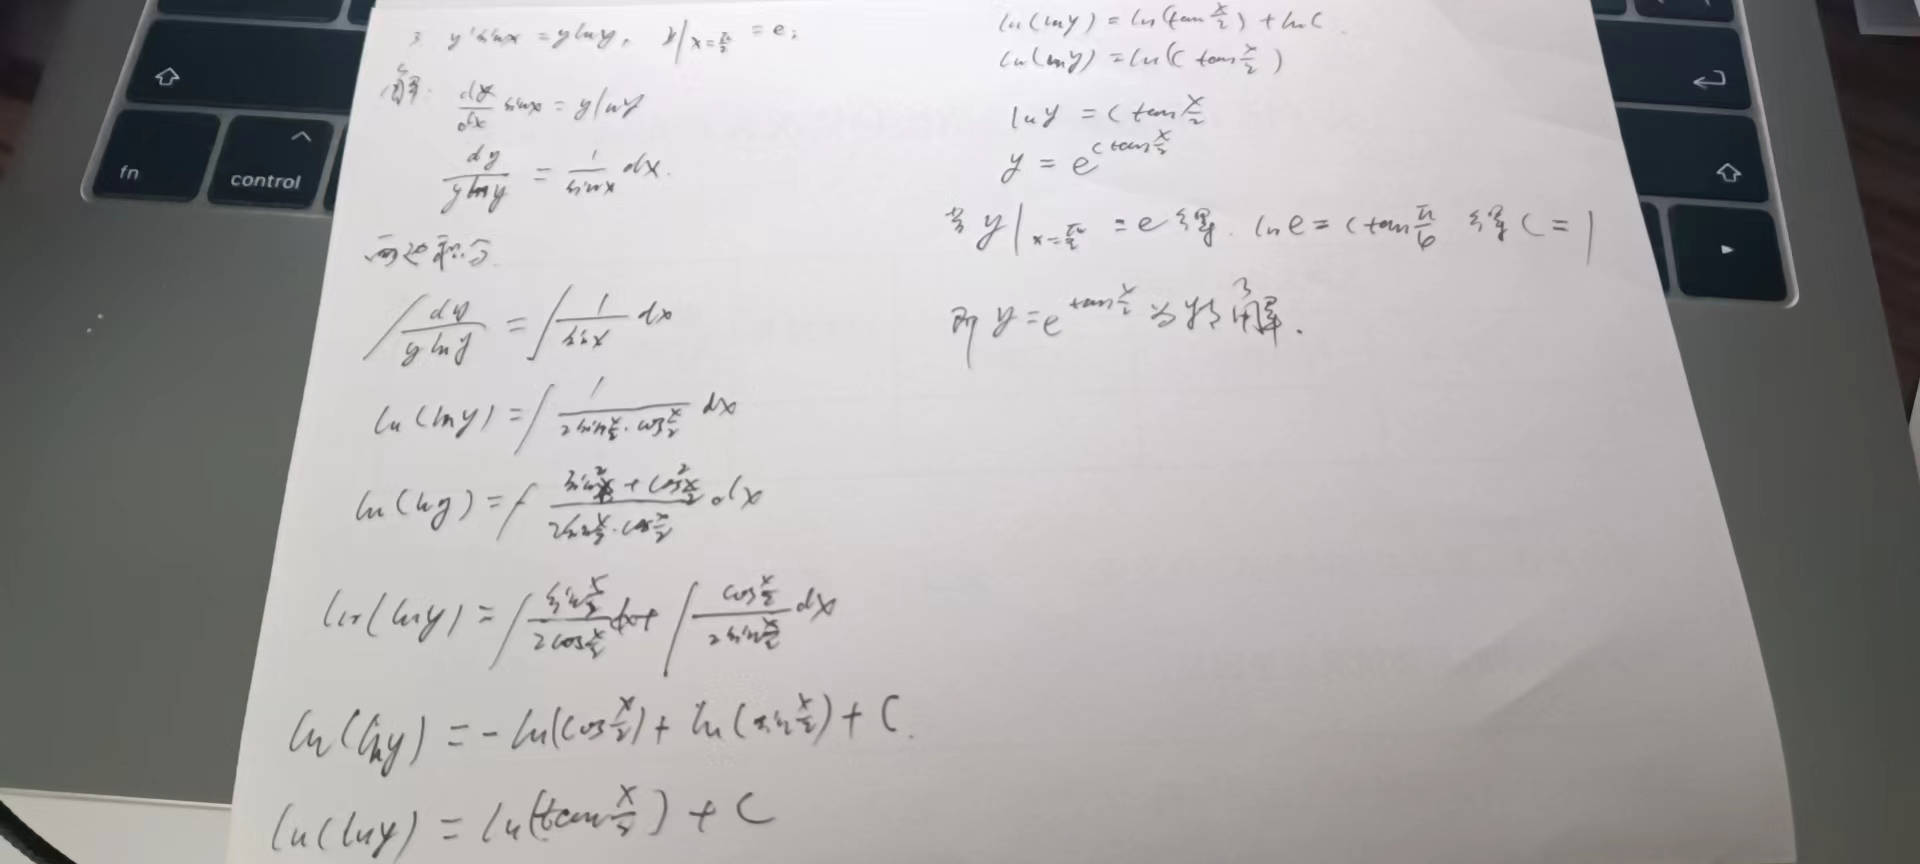 3 y'sinx = ylny, y|x=π/2 = e;
解:
dy/dx sinx = ylny
dy/(ylny) = 1/sinx dx.
两边积分.
∫ dy/(ylny) = ∫ 1/sinx dx
ln(lny) = ∫ 1/(2sin x/2 · cos x/2) dx
ln(lny) = ∫ (sin² x/2 + cos² x/2)/(2sin x/2 · cos x/2) dx
ln(lny) = ∫ (sin x/2)/(2cos x/2) dx + ∫ (cos x/2)/(2sin x/2) dx
ln(lny) = -ln(cos x/2) + ln(sin x/2) + C.
ln(lny) = ln(tan x/2) + C
ln(lny) = ln(tan x/2) + lnC.
ln(lny) = ln(C tan x/2)
lny = C tan x/2
y = e^(C tan x/2)
y|x=π/2 = e 得. lne = C tan π/6 得 C = 1
即 y = e^(tan x/2) 为 特解.
fn
control